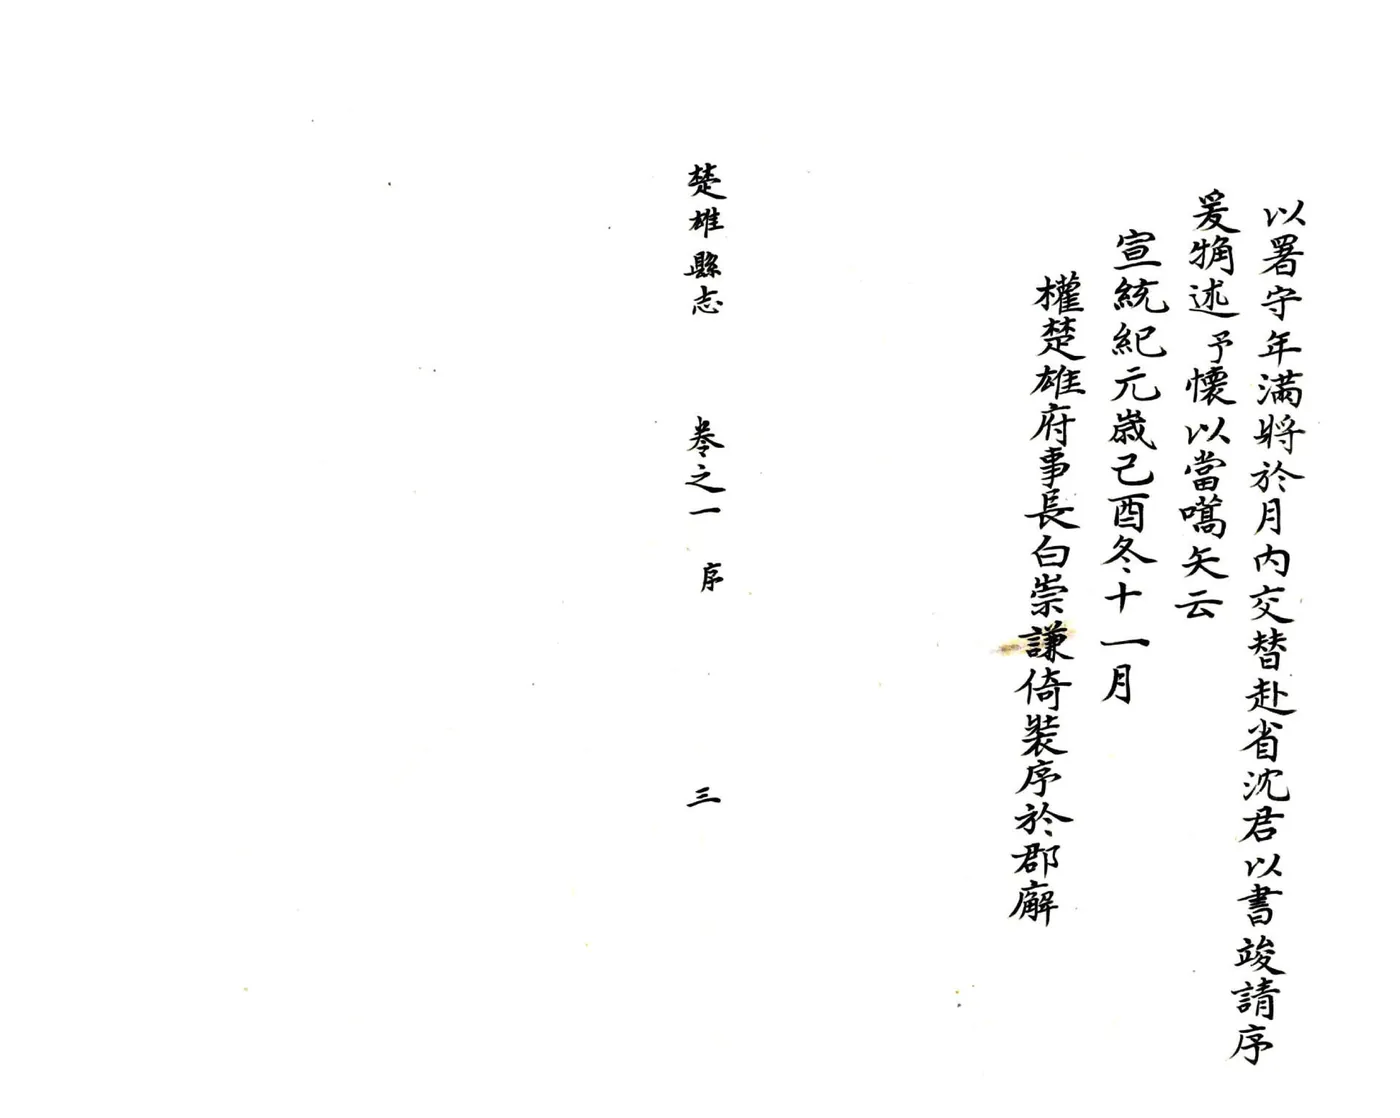 以署守年滿將於月內交替赴省沈君以書竣請序
爰觕述予懷以當嚆矢云
宣統紀元歲己酉冬十一月
權楚雄府事長白崇謙倚裝序於郡廨
楚雄縣志　卷之一　序　三